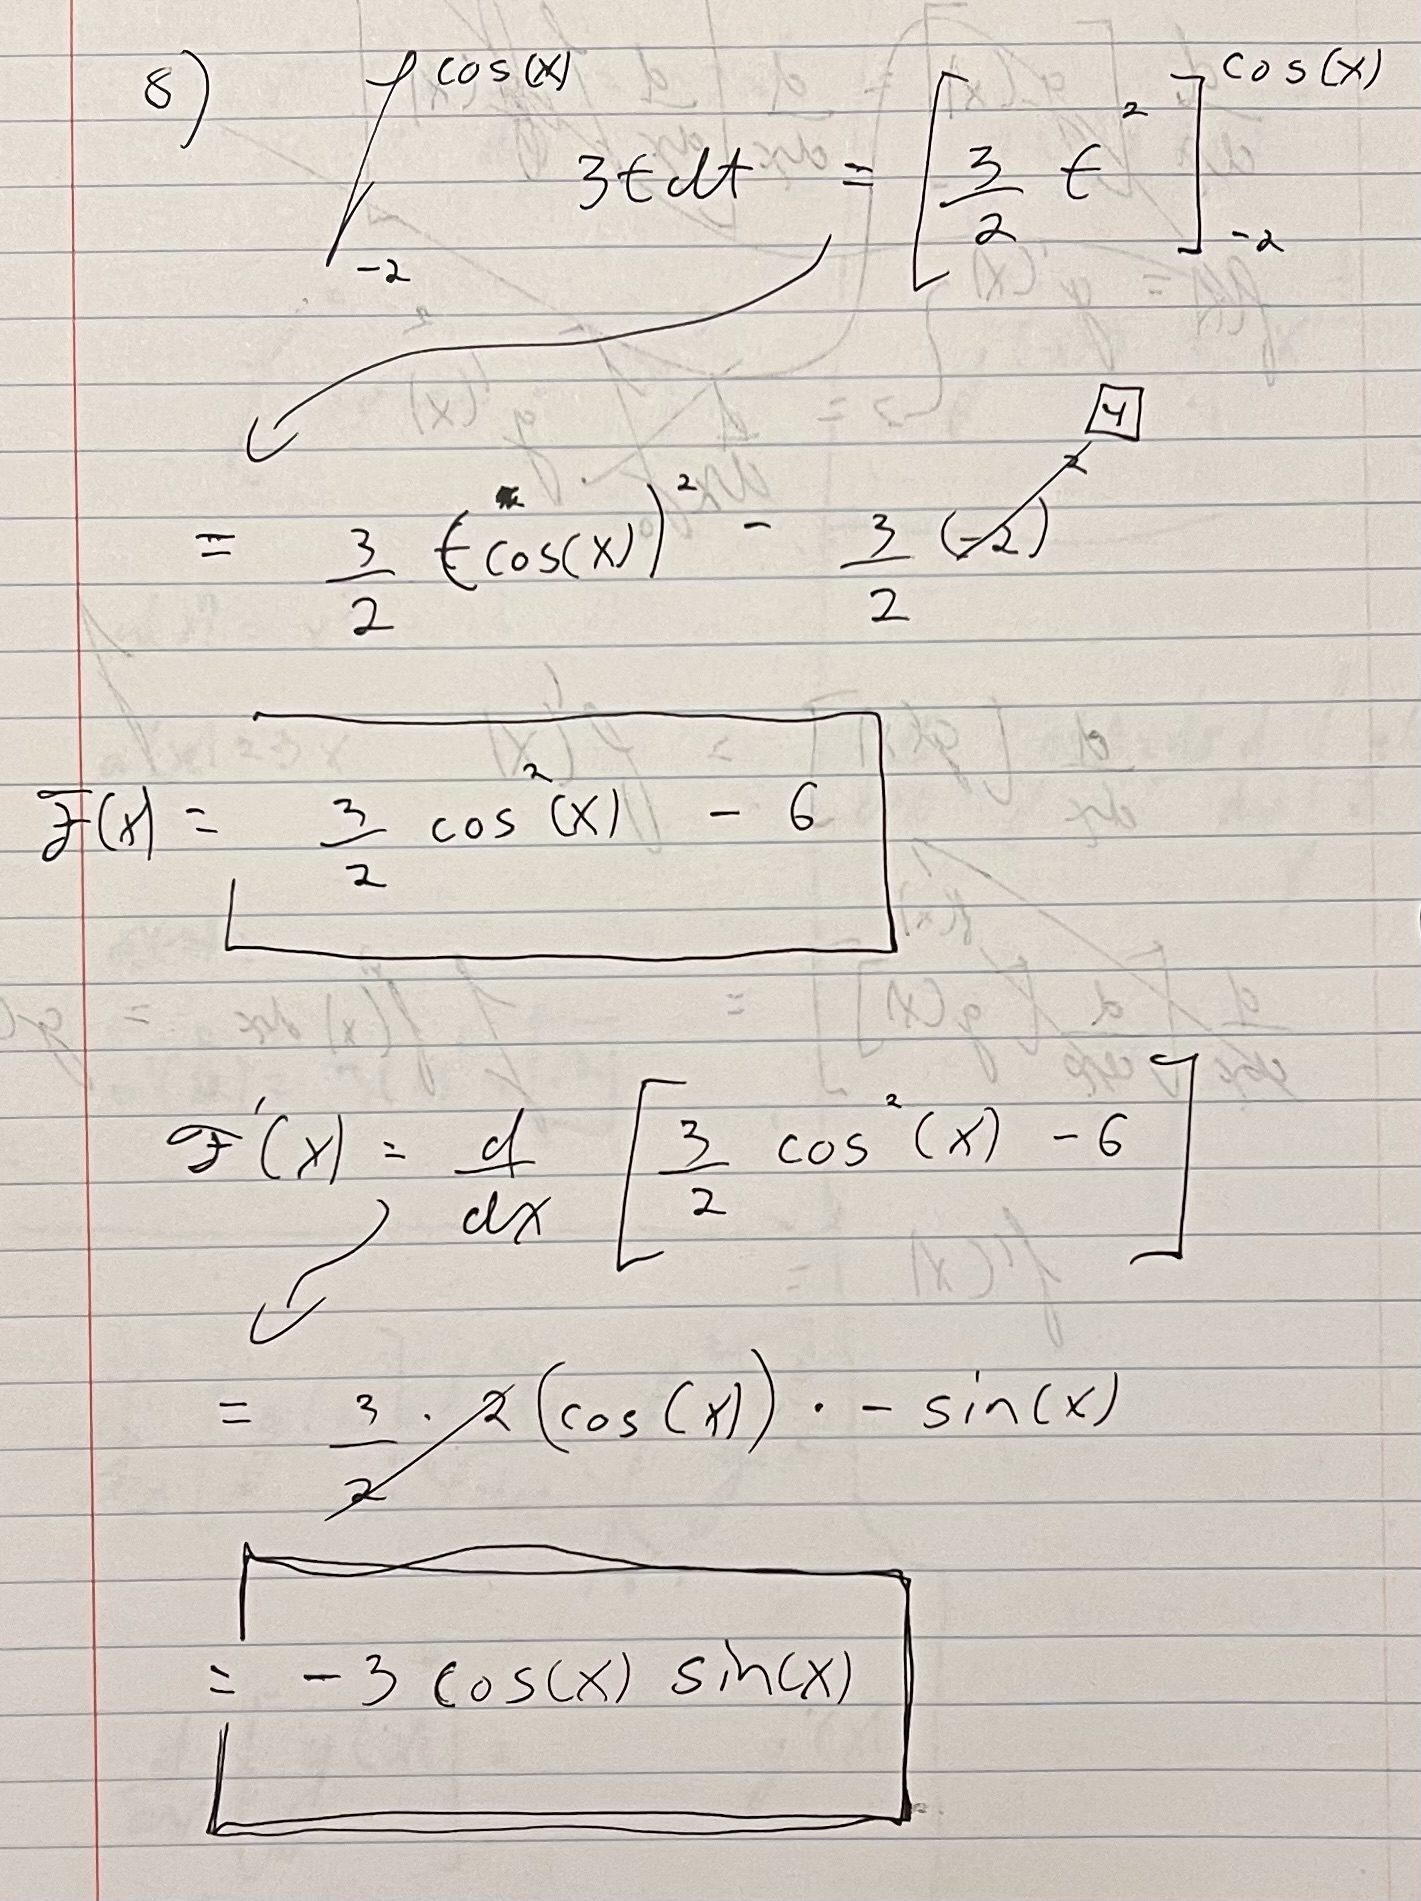 8) ∫_{-2}^{cos(x)} 3t dt = [3/2 t²]_{-2}^{cos(x)}
= 3/2 (cos(x))² - 3/2 (-2)² 4
F(x) = 3/2 cos²(x) - 6
F'(x) = d/dx [3/2 cos²(x) - 6]
= 3/2 · 2(cos(x)) · - sin(x)
= -3 cos(x) sin(x)